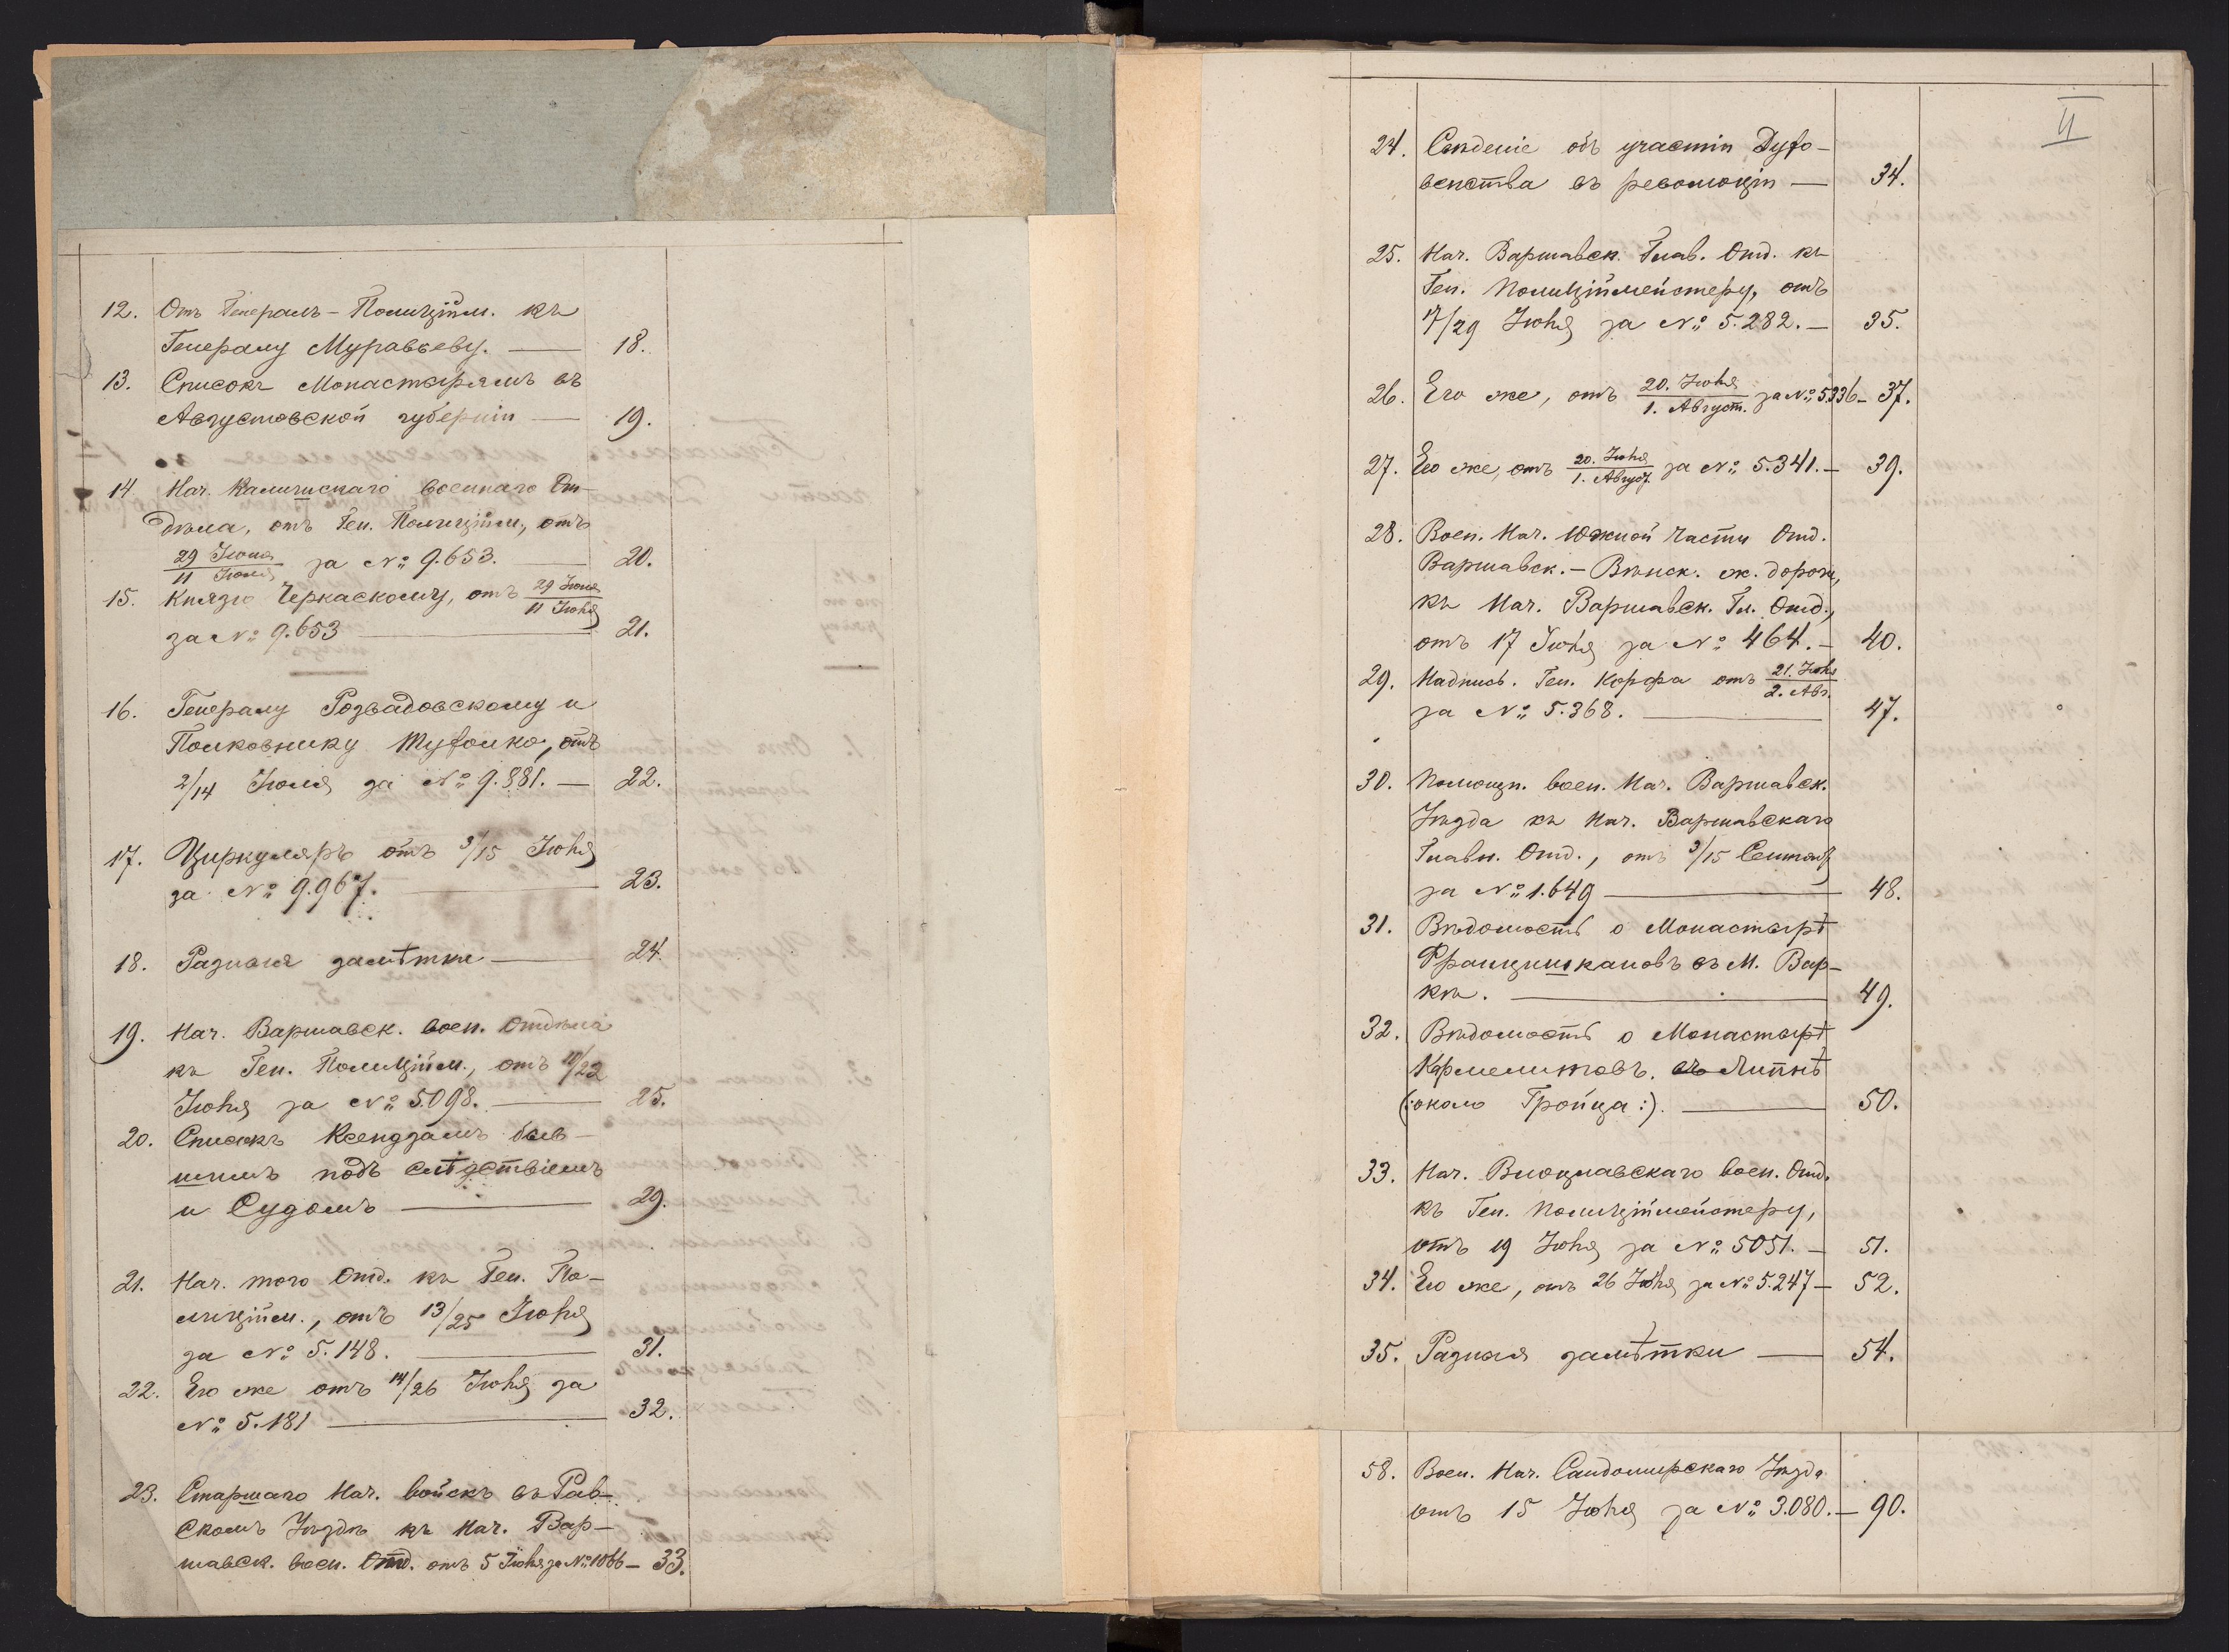 12. Отъ Генералъ-Полиційм. къ
Генералу Муравьеву. — 18.
13. Списокъ Монастырямъ въ
Августовской губерніи — 19.
14 Нач. Калишскаго военнаго От-
дѣла, отъ Ген. Полиційм., отъ
29 Іюня / 11 Іюля за № 9.653. — 20.
15. Князю Черкаскому, отъ 29 Іюня / 11 Іюля
за № 9.653 — 21.
16. Генералу Розвадовскому и
Полковнику Тухолко, отъ
2/14 Іюля за № 9.881. — 22.
17. Циркуляръ отъ 3/15 Іюля
за № 9.967. — 23.
18. Разныя замѣтки — 24.
19. Нач. Варшавск. воен. Отдѣла
къ Ген. Полиційм., отъ 10/22
Іюля за № 5.098. — 25.
20. Списокъ Ксендзамъ быв-
шимъ подъ слѣдствіемъ
и Судомъ — 29.
21. Нач. того Отд. къ Ген. По-
лиційм., отъ 13/25 Іюля
за № 5.148. — 31.
22. Его же отъ 14/26 Іюля за
№ 5.181 — 32.
23. Старшаго Нач. войскъ въ Рав-
скомъ Уѣздѣ къ Нач. Вар-
шавск. воен. Отд. отъ 5 Іюля за № 1066 — 33.
II
24. Свѣденіе объ участіи Духо-
венства въ революціи — 34.
25. Нач. Варшавск. Глав. Отд. къ
Ген. Полиціймейстеру, отъ
17/29 Іюля за № 5.282. — 35.
26. Его же, отъ 20. Іюля / 1. Август. за № 5.336 — 37.
27. Его же, отъ 20. Іюля / 1. Август. за № 5.341. — 39.
28. Воен. Нач. Южной Части Отд.
Варшавск.-Вѣнск. ж. дороги,
къ Нач. Варшавск. Гл. Отд.,
отъ 17 Іюля за № 464. — 40.
29. Надпись. Ген. Корфа отъ 21. Іюля / 2. Авг.
за № 5.368. — 47.
30. Помощн. воен. Нач. Варшавск.
Уѣзда къ Нач. Варшавскаго
Главн. Отд., отъ 3/15 Сентяб.
за № 1.649 — 48.
31. Вѣдомость о Монастырѣ
Францишкановъ въ М. Вар-
кѣ. — 49.
32. Вѣдомость о Монастырѣ
Кармелитовъ. въ Липнѣ
(:около Гройца:). — 50.
33. Нач. Влоцлавскаго воен. Отд.
къ Ген. Полиціймейстеру,
отъ 19 Іюля за № 5051. — 51.
34. Его же, отъ 26 Іюля за № 5.247 — 52.
35. Разныя замѣтки — 54.
58. Воен. Нач. Сандомирскаго Уѣзда
отъ 15 Іюля за № 3.080. — 90.